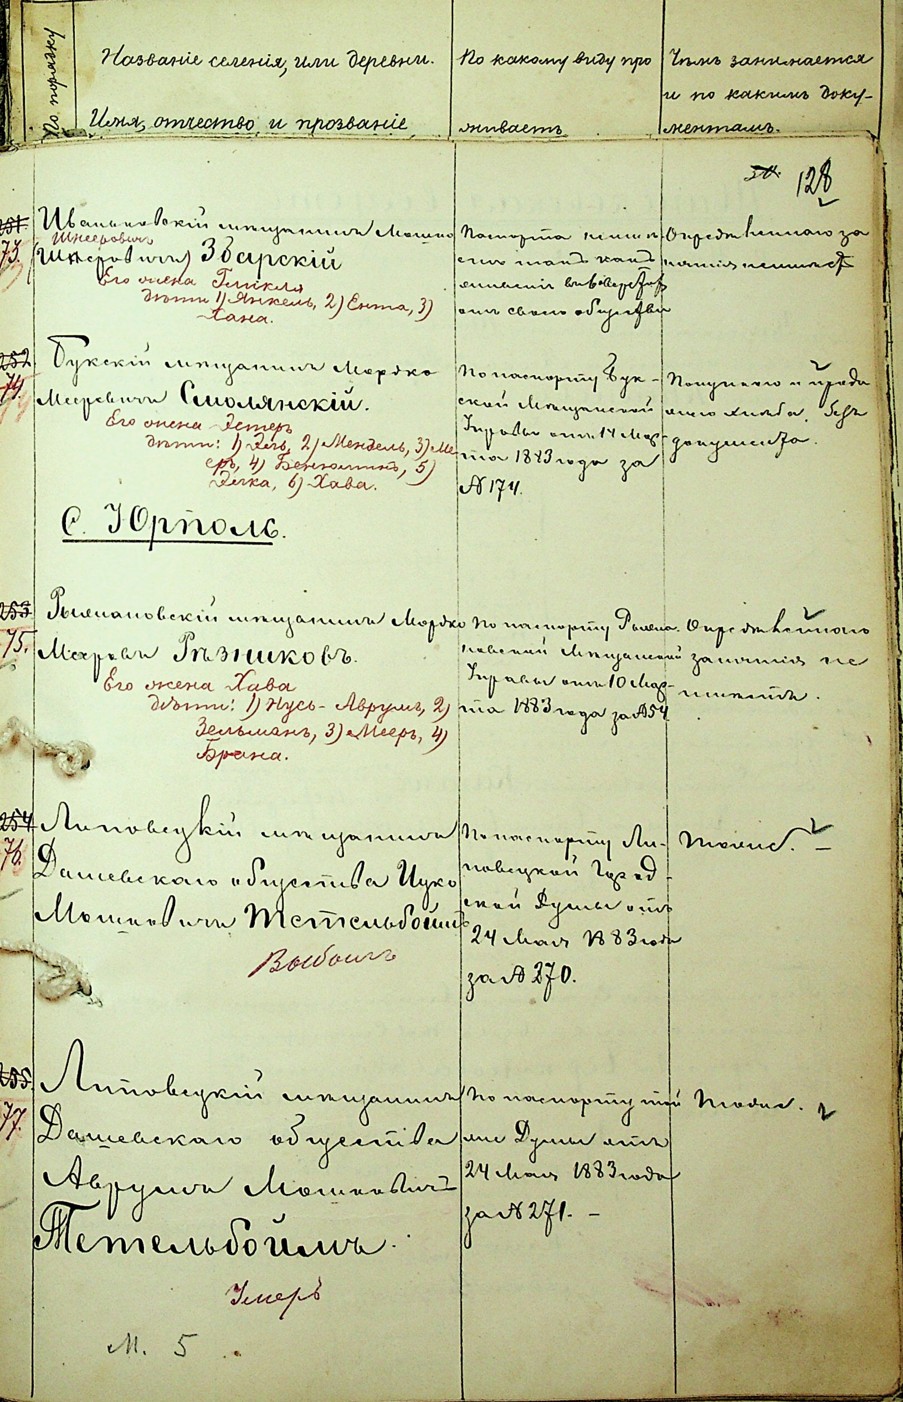 По порядку
Названіе селенія, или деревни.
Имя, отчество и прозваніе
По какому виду про
живаетъ
Чѣмъ занимается
и по какимъ доку-
ментамъ.
128
251.
73.
Иваньковскій мѣщанинъ Мошко
Шнееровичъ
Збарскій
Его жена
дѣти 1) Янкель, 2) Ента, 3)
Хана.
Паспорта
отъ своего общества
Опредѣленнаго за
нятія не имѣетъ
252.
74.
Букскій мѣщанинъ Мордко
Мееровичъ Смолянскій.
Его жена Эстеръ
дѣти: 1) 2) Мендель, 3) Ме
еръ, 4) Беньюминъ, 5)
6) Хава.
По паспорту Бук-
ской Мѣщанской
Управы отъ 14 Мар-
та 1883 года за
№ 174.
Покупкою и прода
жею хлѣба, безъ
документа.
С. Юрполь.
253.
75.
Рыжановскій мѣщанинъ Мордко
Мееровъ Рѣзниковъ.
Его жена Хава
дѣти: 1) Нусь-Аврумъ, 2)
Зельманъ, 3) Мееръ, 4)
Брана.
По паспорту Рыжа.
новской Мѣщанской
Управы отъ 10 Мар-
та 1883 года за № 54
Опредѣленнаго
занятія не
имѣетъ.
254
76.
Липовецкій мѣщанинъ
Дашевскаго общества Ицко
Мошковичъ Тетельбоймъ
Выбылъ
По паспорту Ли-
повецкой Город-
ской Думы отъ
24 Мая 1883 года
за № 270.
Тоже. –
255.
77.
Липовецкій мѣщанинъ
Дашевскаго общества
Аврумъ Мошковичъ
Тетельбоймъ.
Умеръ
По паспорту той
же Думы отъ
24 Мая 1883 года
за № 271. –
Тоже.
М. 5